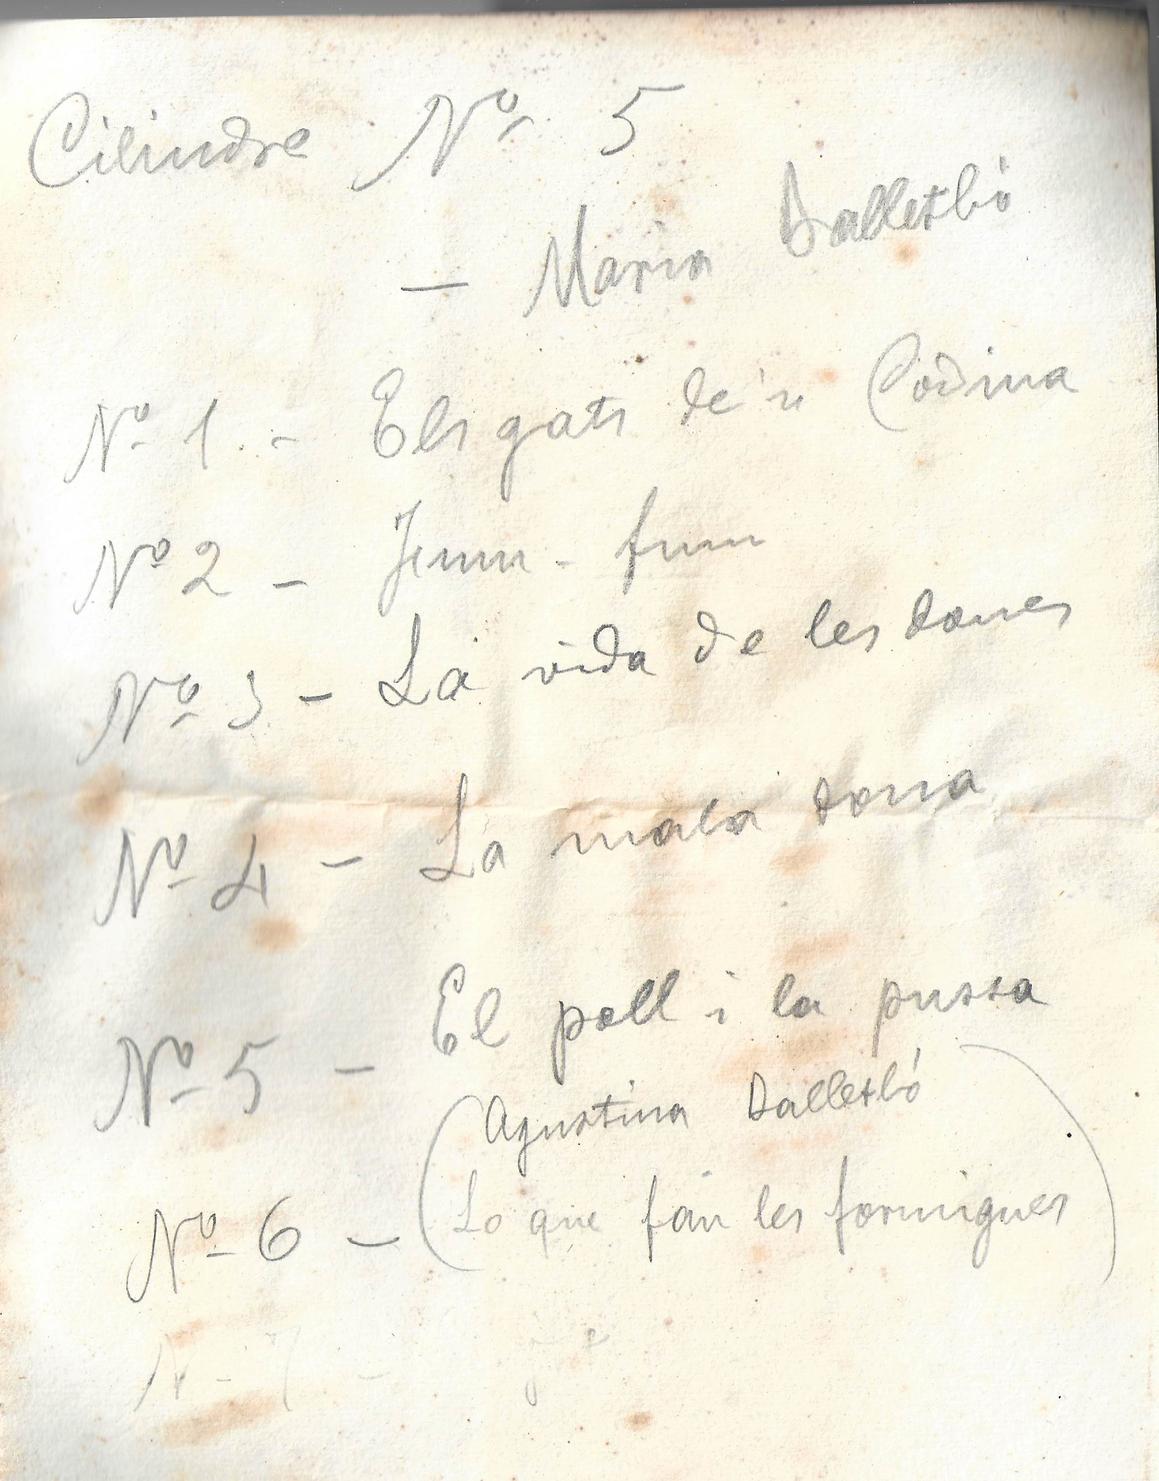 Cilindre Nº 5
— Maria Ballesbó
Nº 1. - Els gats de'n Codina
Nº 2 - Fum - fum
Nº 3 - La vida de les dones
Nº 4 - La mala dona
Nº 5 - El poll i la pussa
(Agustina Ballesbó
Nº 6 - Lo que fan les formigues)
N - 7 -